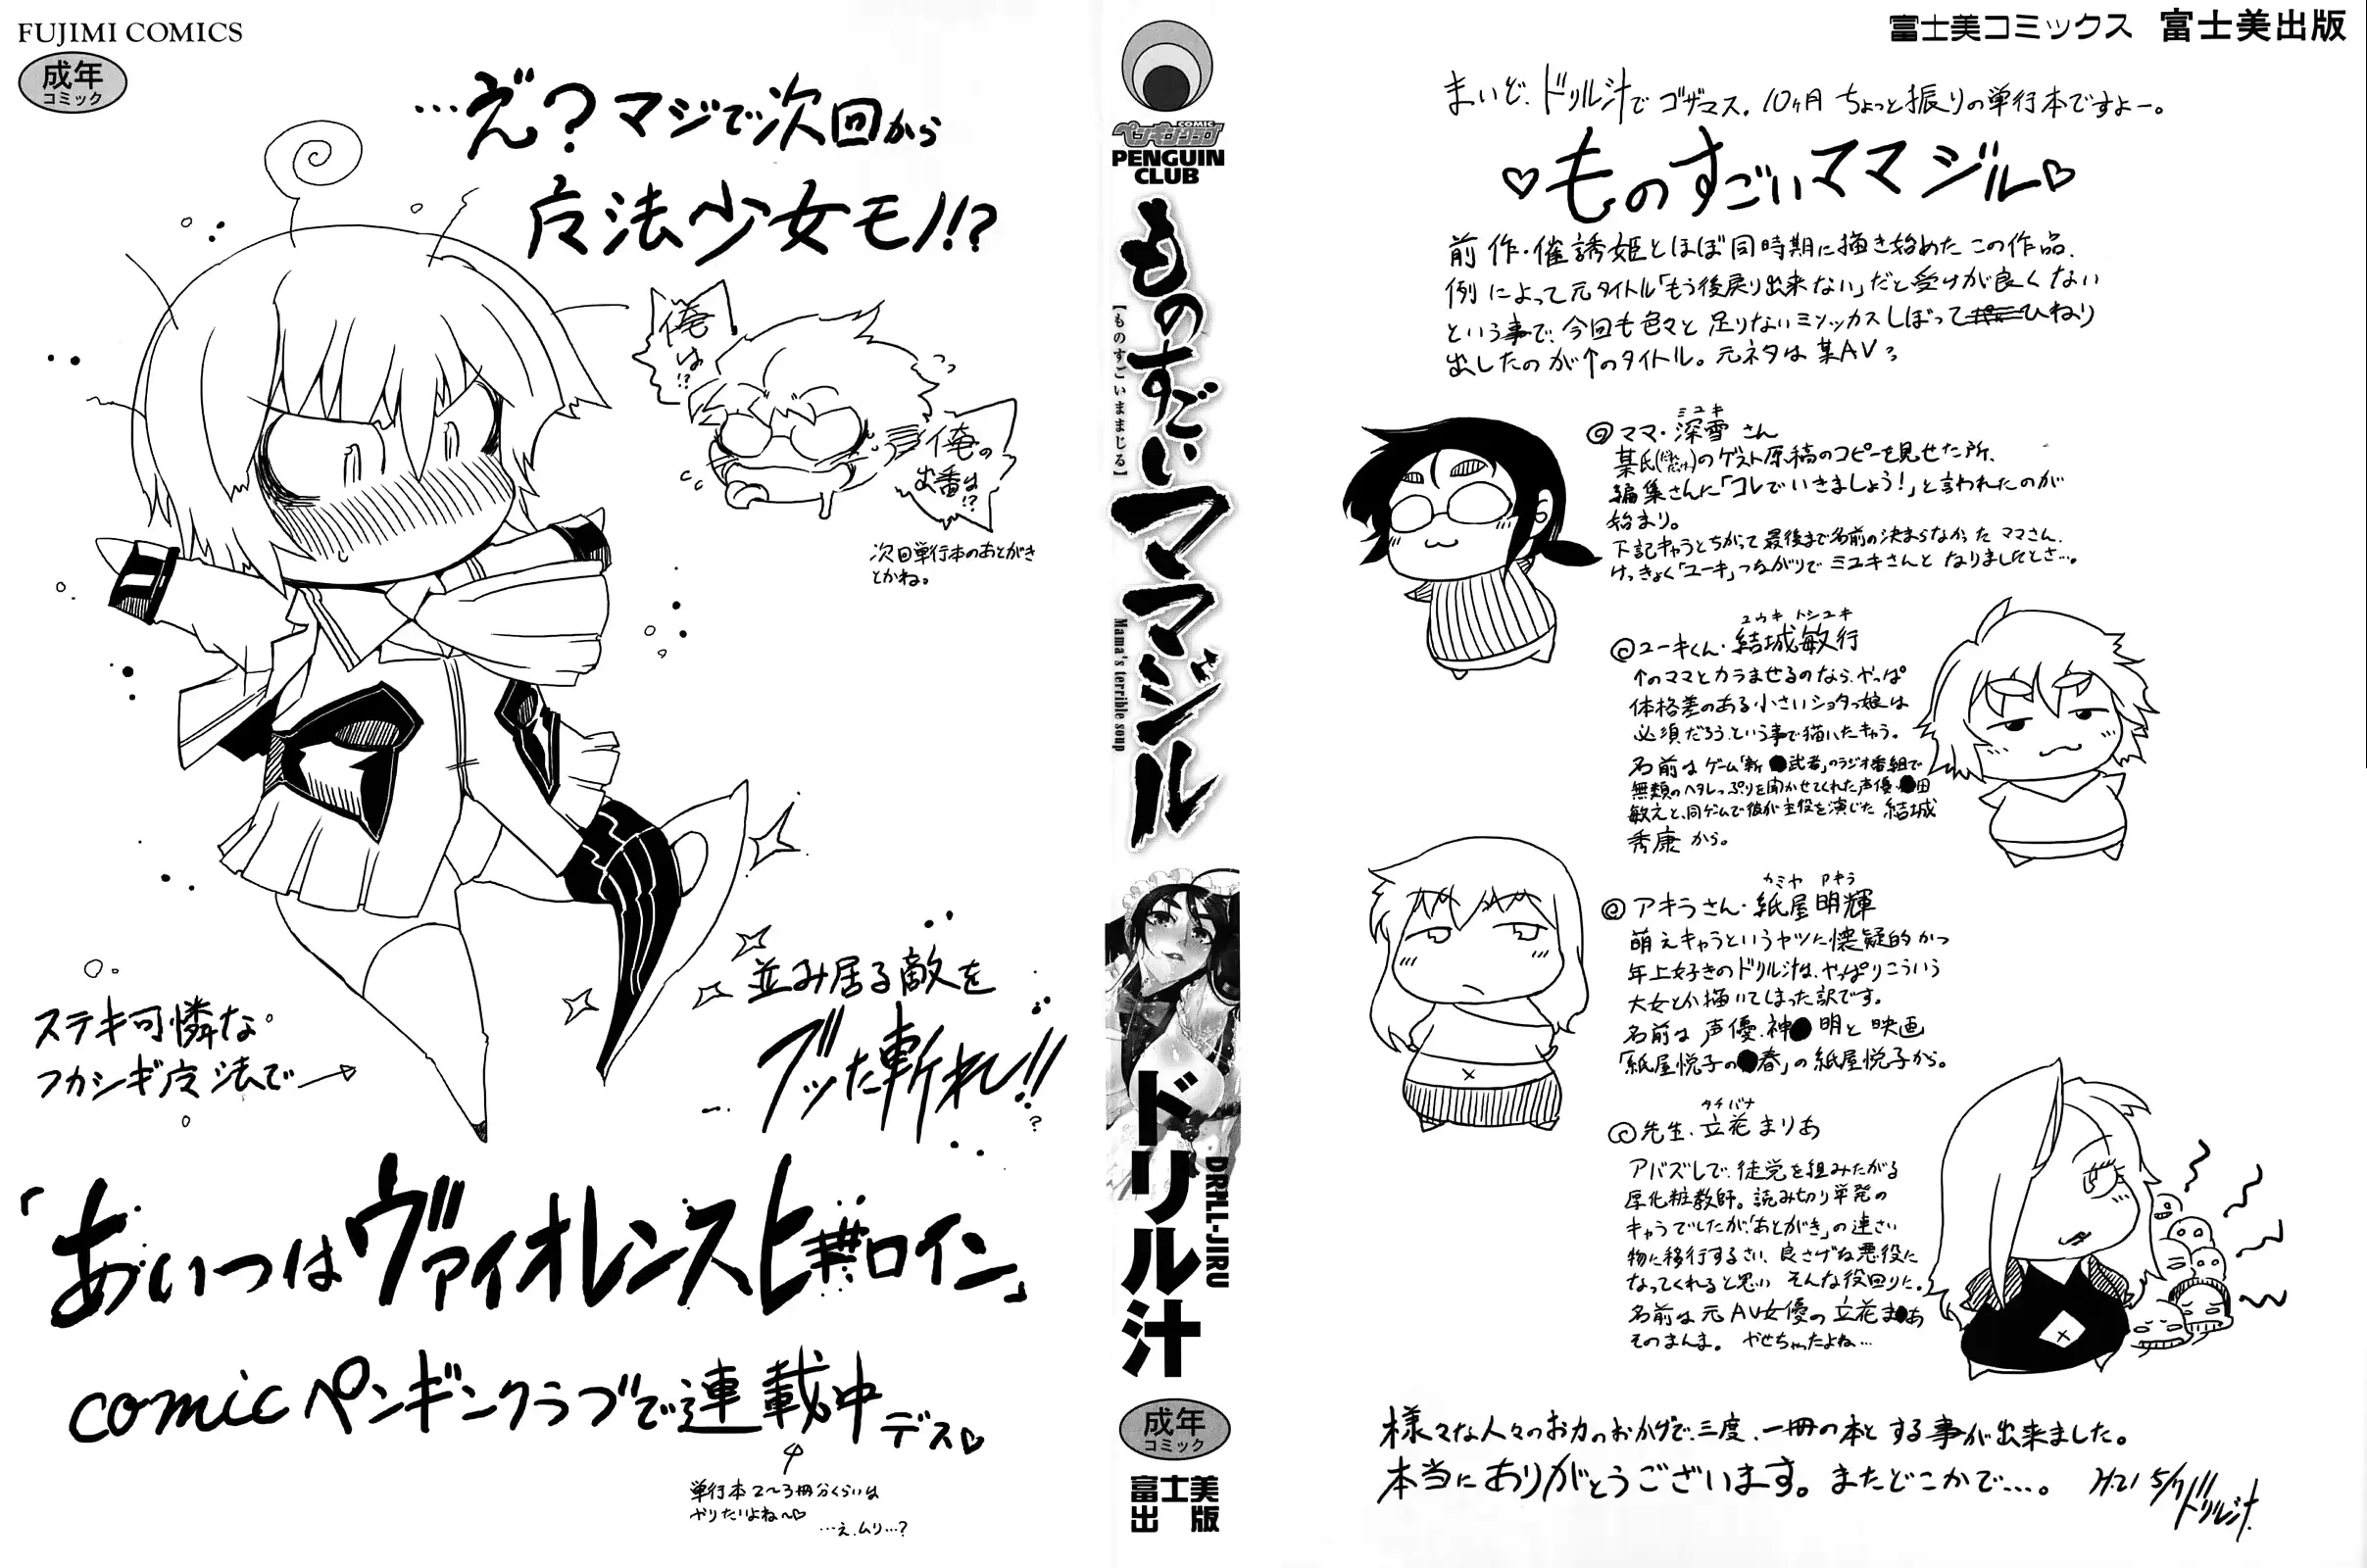 FUJIMI COMICS
成年
コミック
…え゛?マジで次回から
魔法少女モノ!!?
俺
は!?
俺の
出番は!?
次回単行本のあとがき
とかね。
ステキ可憐な
フカシギ魔法で
並み居る敵を
ブッた斬れし!!
「あいつはヴァイオレンスヒロイン」
comicペンギンクラブで連載中デス♡
単行本2〜3冊分くらいは
やりたいよね〜♡
…え、ムリ…?
COMIC
ペンギンクラブ
PENGUIN
CLUB
ものすごいママジル
【ものすごいままじる】
Mama's terrible soup
ドリル汁
DRILL-JIRU
成年
コミック
富士美
出版
富士美コミックス 富士美出版
まいど、ドリル汁でゴザマス。10ヶ月ちょっと振りの単行本ですよー。
♡ものすごいママジル♡
前作・催誘姫とほぼ同時期に描き始めたこの作品、
例によって元タイトル「もう後戻り出来ない」だと受けが良くない
という事で、今回も色々と足りないミソッカスしぼってひねり
出したのが↑のタイトル。元ネタは某AV。
ミユキ
ママ・深雪さん
某氏のゲスト原稿のコピーを見せた所、
編集さんに「コレでいきましょう!」と言われたのが
始まり。
下記キャラとちがって最後まで名前の決まらなかったママさん。
けっきょく「ユーキ」つながりでミユキさんとなりましたとさ…。
ユウキ トシユキ
ユーキくん・結城敏行
↑のママとカラませるのなら、やっぱ
体格差のある小さいショタっ娘は
必須だろう、という事で描いたキャラ。
名前はゲーム「斬●武者」のラジオ番組で
無類のヘタレっぷりを聞かせてくれた声優・●田
敏えと、同ゲームで彼が主役を演じた結城
秀康から。
カミヤ アキラ
アキラさん・紙屋明輝
萌えキャラというヤツに懐疑的かつ
年上好きのドリル汁は、やっぱりこういう
大女とか描いてしまった訳です。
名前は声優・神●明と映画
「紙屋悦子の●春」の紙屋悦子から。
タチバナ
先生・立花まりあ
アバズレで、徒党を組みたがる
厚化粧教師。読み切り単発の
キャラでしたが、「あとがき」の連さい
物に移行するさい、良さげな悪役に
なってくれると思いそんな役回りに。
名前は元AV女優の立花ま●あ
そのまんま。やせちゃったよね…
様々な人々のお力のおかげで、三度、一冊の本とする事が出来ました。
本当にありがとうございます。またどこかで…。 H.21 5/7 ドリル汁